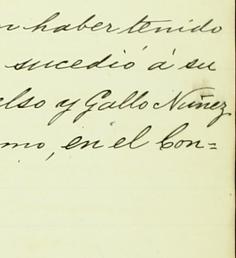 haber tenido
sucedió á su
y Gallo Nuñez
en el Con=